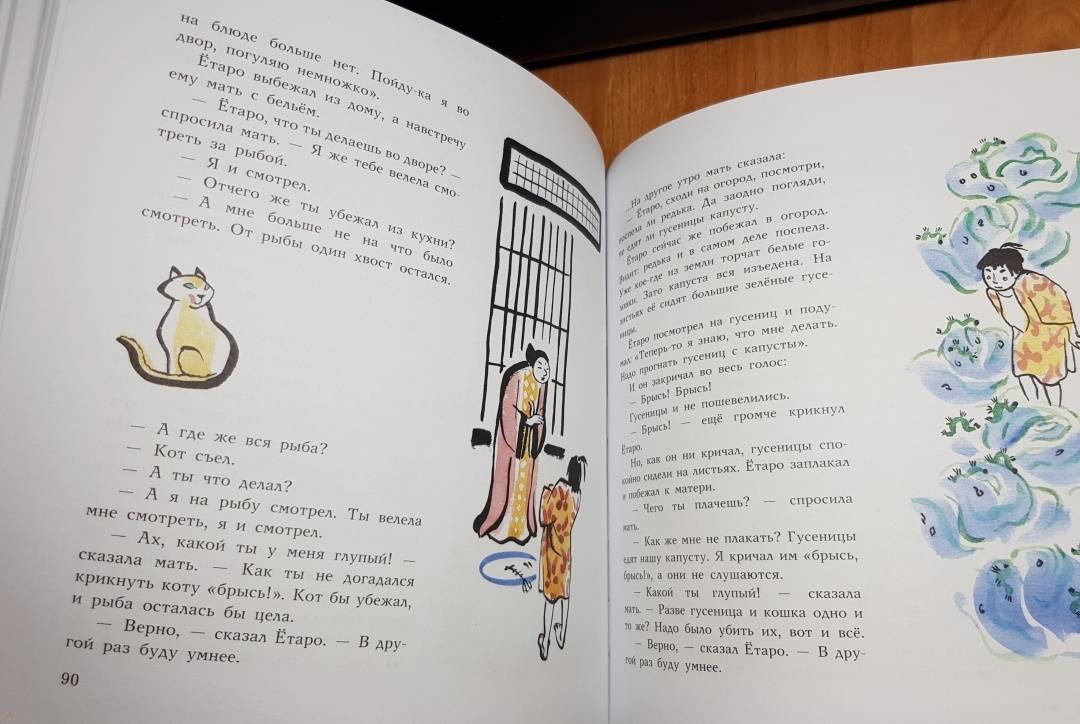 на блюде больше нет. Пойду-ка я во
двор, погуляю немножко».
Ётаро выбежал из дому, а навстречу
ему мать с бельём.
— Ётаро, что ты делаешь во дворе? —
спросила мать. — Я же тебе велела смо-
треть за рыбой.
— Я и смотрел.
— Отчего же ты убежал из кухни?
— А мне больше не на что было
смотреть. От рыбы один хвост остался.
— А где же вся рыба?
— Кот съел.
— А ты что делал?
— А я на рыбу смотрел. Ты велела
мне смотреть, я и смотрел.
— Ах, какой ты у меня глупый! —
сказала мать. — Как ты не догадался
крикнуть коту «брысь!». Кот бы убежал,
и рыба осталась бы цела.
— Верно, — сказал Ётаро. — В дру-
гой раз буду умнее.
90
На другое утро мать сказала:
— Ётаро, сходи на огород, посмотри,
поспела ли редька. Да заодно погляди,
не едят ли гусеницы капусту.
Ётаро сейчас же побежал в огород.
Видит: редька и в самом деле поспела.
Уже кое-где из земли торчат белые го-
ловки. Зато капуста вся изъедена. На
листьях её сидят большие зелёные гусе-
ницы.
Ётаро посмотрел на гусениц и поду-
мал: «Теперь-то я знаю, что мне делать.
Надо прогнать гусениц с капусты».
И он закричал во весь голос:
— Брысь! Брысь!
Гусеницы и не пошевелились.
— Брысь! — ещё громче крикнул
Ётаро.
Но, как он ни кричал, гусеницы спо-
койно сидели на листьях. Ётаро заплакал
и побежал к матери.
— Чего ты плачешь? — спросила
мать.
— Как же мне не плакать? Гусеницы
едят нашу капусту. Я кричал им «брысь,
брысь!», а они не слушаются.
— Какой ты глупый! — сказала
мать. — Разве гусеница и кошка одно и
то же? Надо было убить их, вот и всё.
— Верно, — сказал Ётаро. — В дру-
гой раз буду умнее.